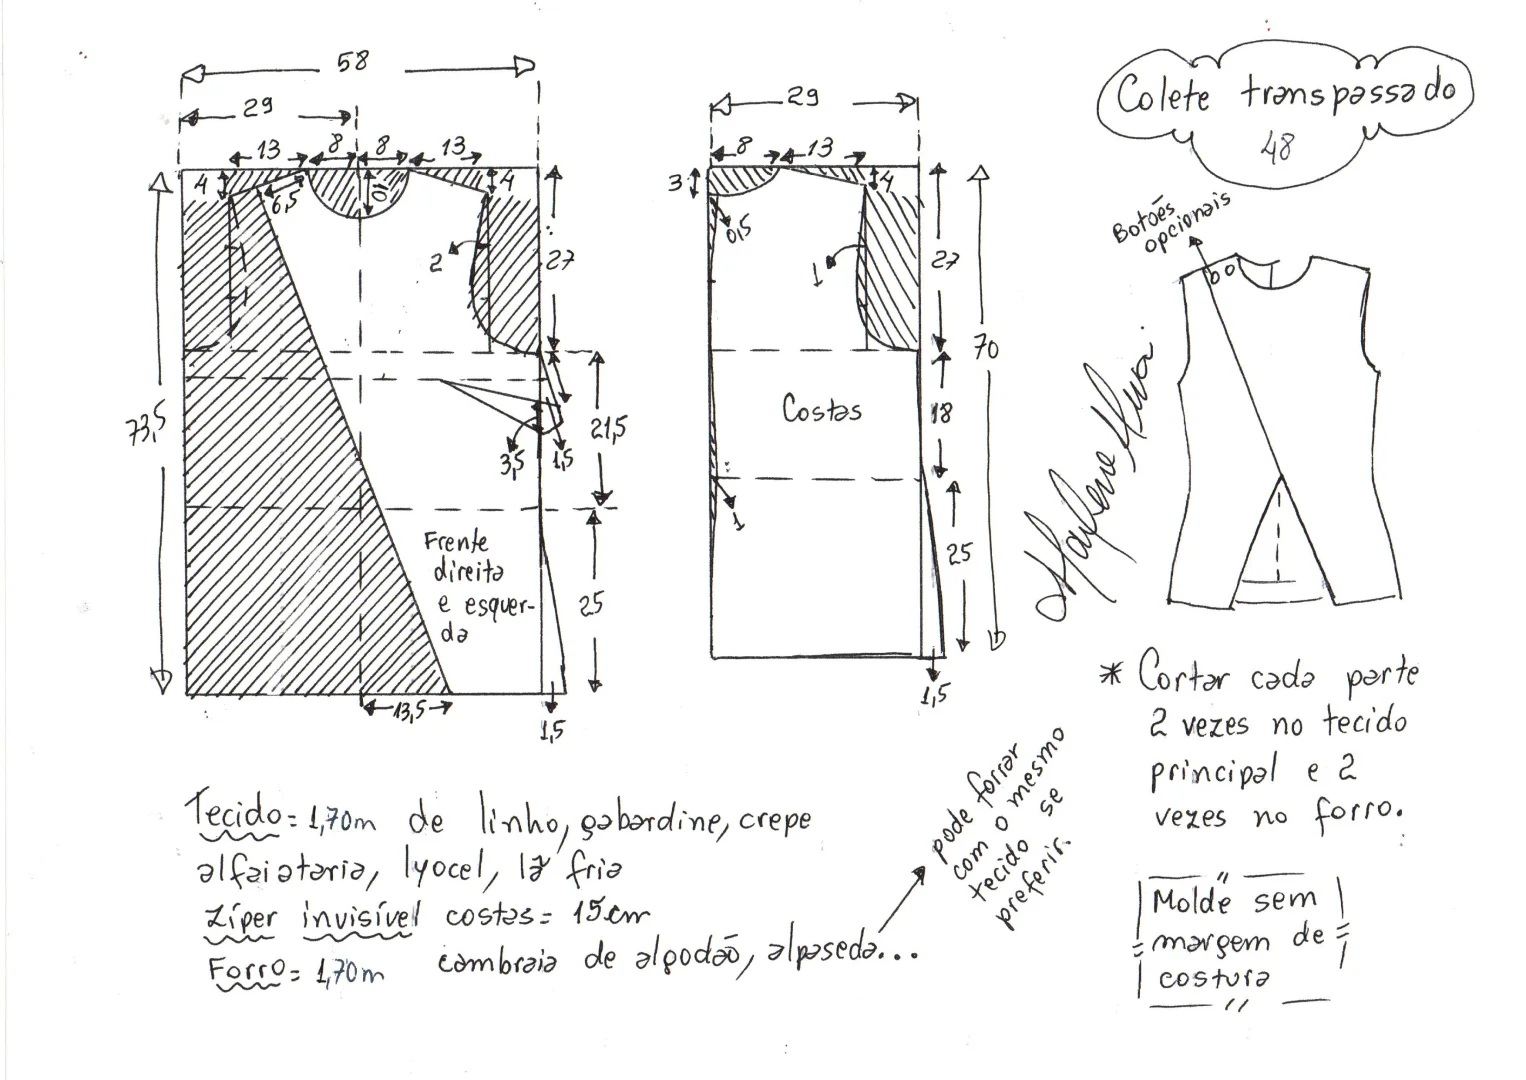 Colete transpassado
48
58
29
13
8
8
13
4
6,5
10
4
2
27
73,5
21,5
3,5
1,5
Frente
direita
e esquer-
da
25
13,5
1,5
29
8
13
3
4
0,5
1
27
70
Costas
18
1
25
1,5
Botões
opcionais
* Cortar cada parte
2 vezes no tecido
principal e 2
vezes no forro.
Molde sem
margem de
costura
Tecido= 1,70m de linho, gabardine, crepe
alfaiataria, lyocel, lã fria
Zíper invisível costas= 15cm
Forro= 1,70m cambraia de algodão, alpaseda...
pode forrar
com o mesmo
tecido se
preferir.